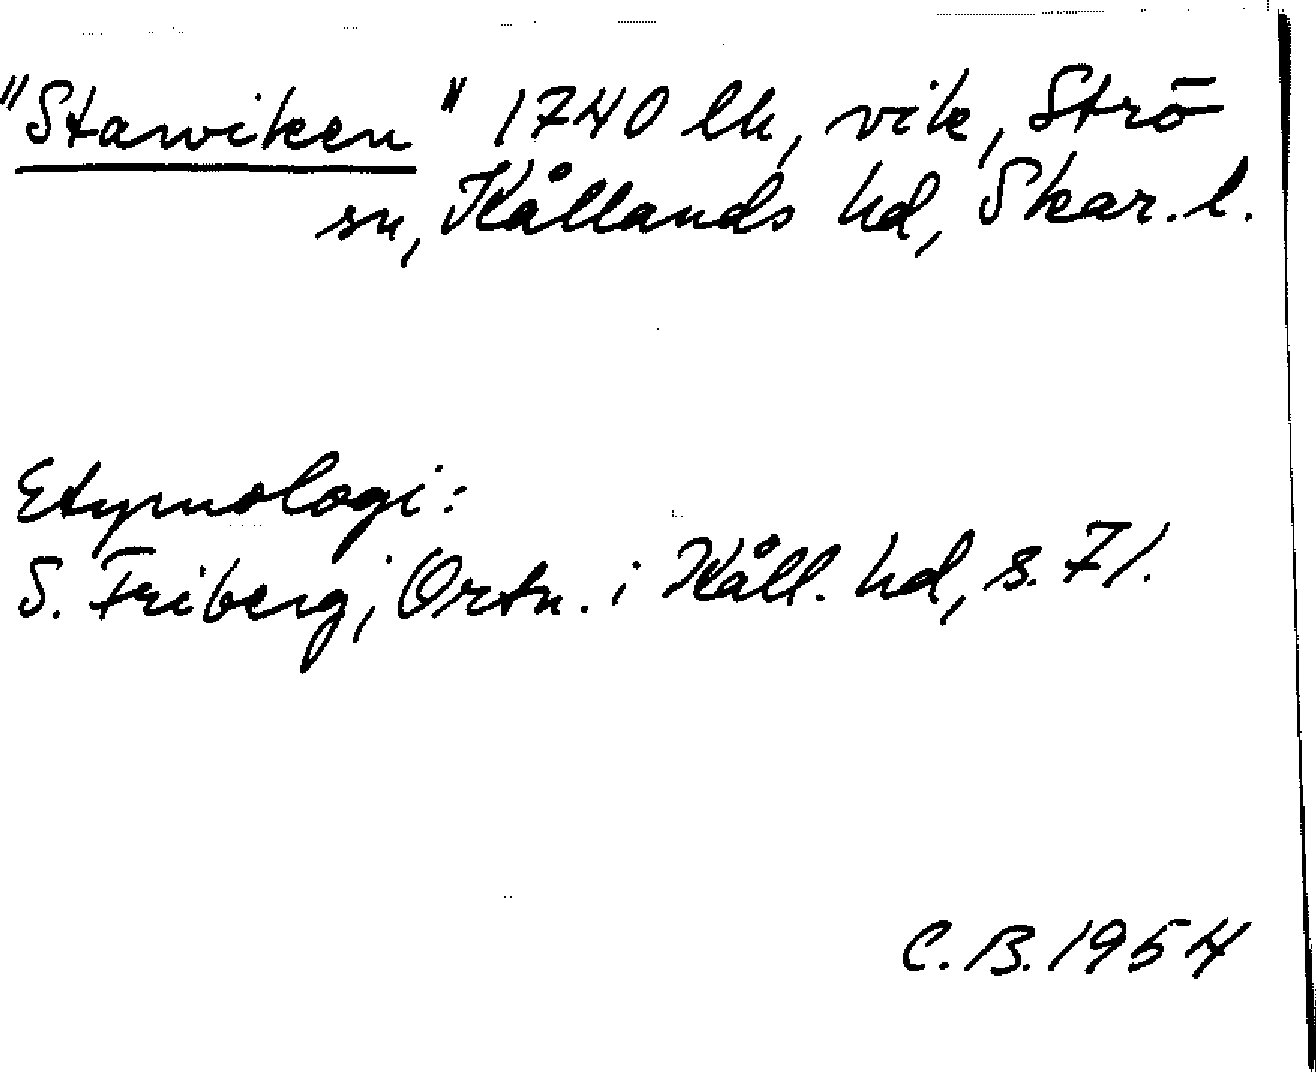 "Stawiken" 1740 lh, vik, Strö
sn, Kållands hd, Skar. l.
Etymologi:
S. Friberg, Ortn. i Kåll. hd, s. 71.
C. B. 1954